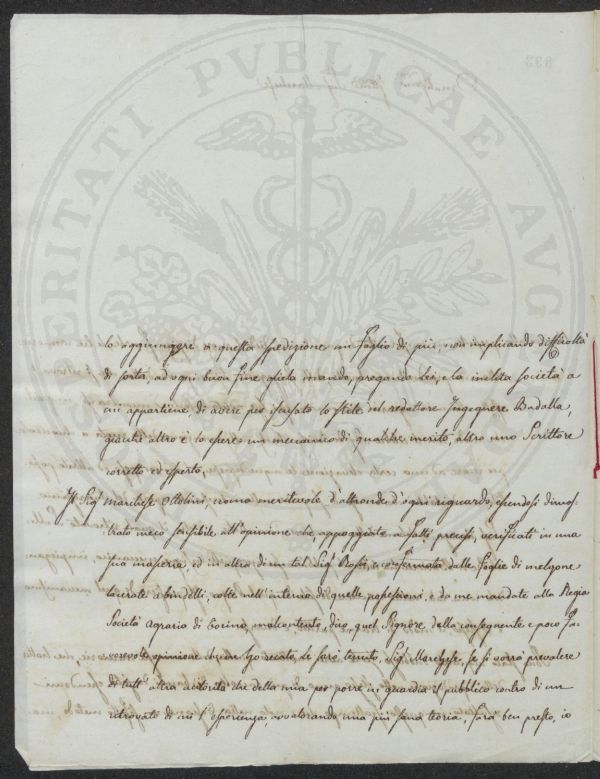 PROSPERITATI PVBLICAE AVG
lo aggiungere a questa spedizione un foglio di più, non implicando difficoltà
di sorta, ad ogni buon fine glielo mando, pregando Lei, e la inclita società a
cui appartiene, di avere per iscusato lo stile del redattore Ingegnere Badalla,
giacché altro è lo essere un meccanico di qualche merito, altro uno Scrittore
corretto ed esperto.
Il Sigr Marchese Ottolini, uomo meritevole d'altronde d'ogni riguardo, essendosi dimos-
trato meco sensibile all'opinione che appoggiata a fatti precisi, verificati in una
sua masseria, ed in altra di un tal Sigr Bossi, e confermata dalle foglie di melgone
lacerate a brindelli, colte nell'interno di quelle possessioni, e da me mandate alla Regia
Società Agraria di Torino, malcontento, dico, quel Signore, della conseguente e poco fa-
vorevole opinione che ne ho recato, Le sarò tenuto, Sigr Marchese, se si vorrà prevalere
di tutt'altra autorità che della mia per porre in guardia il pubblico contro di un
ritrovato di cui l'esperienza, avvalorando una più sana teoria, farà ben presto, io